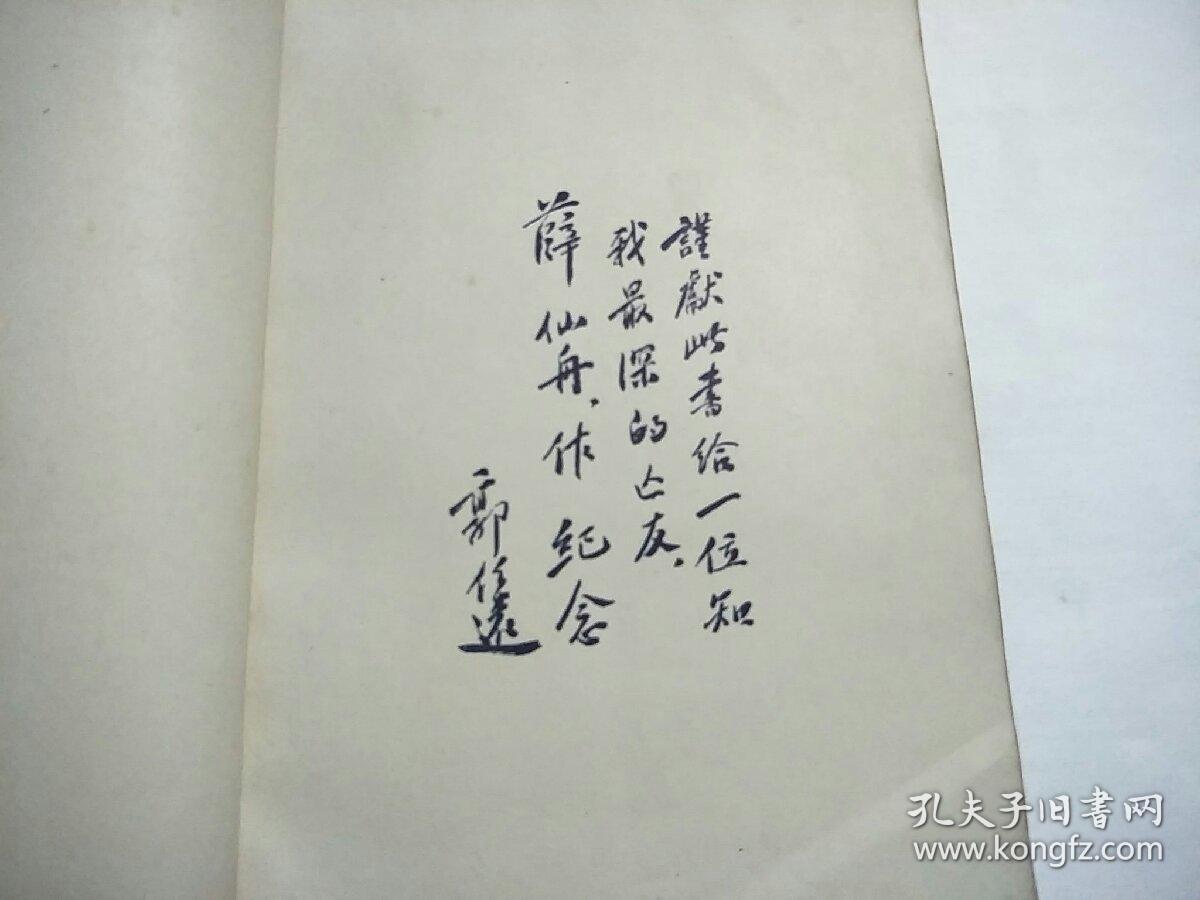 謹獻此書给一位知
我最深的亡友、
薛仙舟、作紀念
郭任遠
孔夫子旧书网
www.kongfz.com